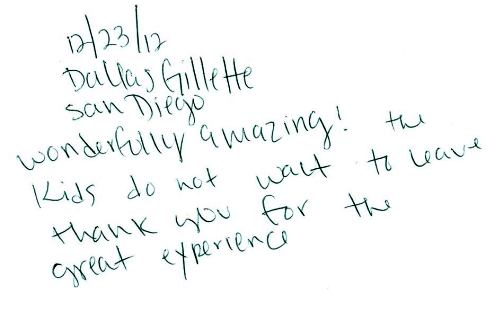 12/23/12
Dallas Gillette
San Diego
wonderfully amazing! the
Kids do not wait to leave
thank you for the
great experience